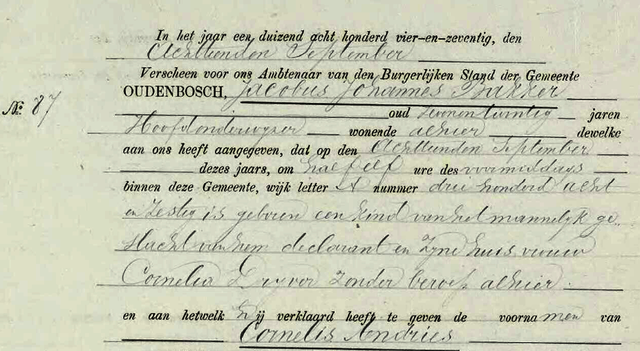 In het jaar een duizend acht honderd vier-en-zeventig, den
Achttienden September
Verscheen voor ons Ambtenaar van den Burgerlijken Stand der Gemeente
OUDENBOSCH, Jacobus Johannes Bakker
oud jaren
No. 87
Hoofdonderwyzer wonende alhier dewelke
aan ons heeft aangegeven, dat op den Achttienden September
dezes jaars, om half elf ure des voormiddags
binnen deze Gemeente, wijk letter A nummer drie honderd acht
en zestig is geboren een kind van het mannelijk ge-
slacht van hem declarant en zyne huisvrouw
Cornelia zonder beroep alhier.
en aan hetwelk hij verklaard heeft te geven de voornamen van
Cornelis Andries